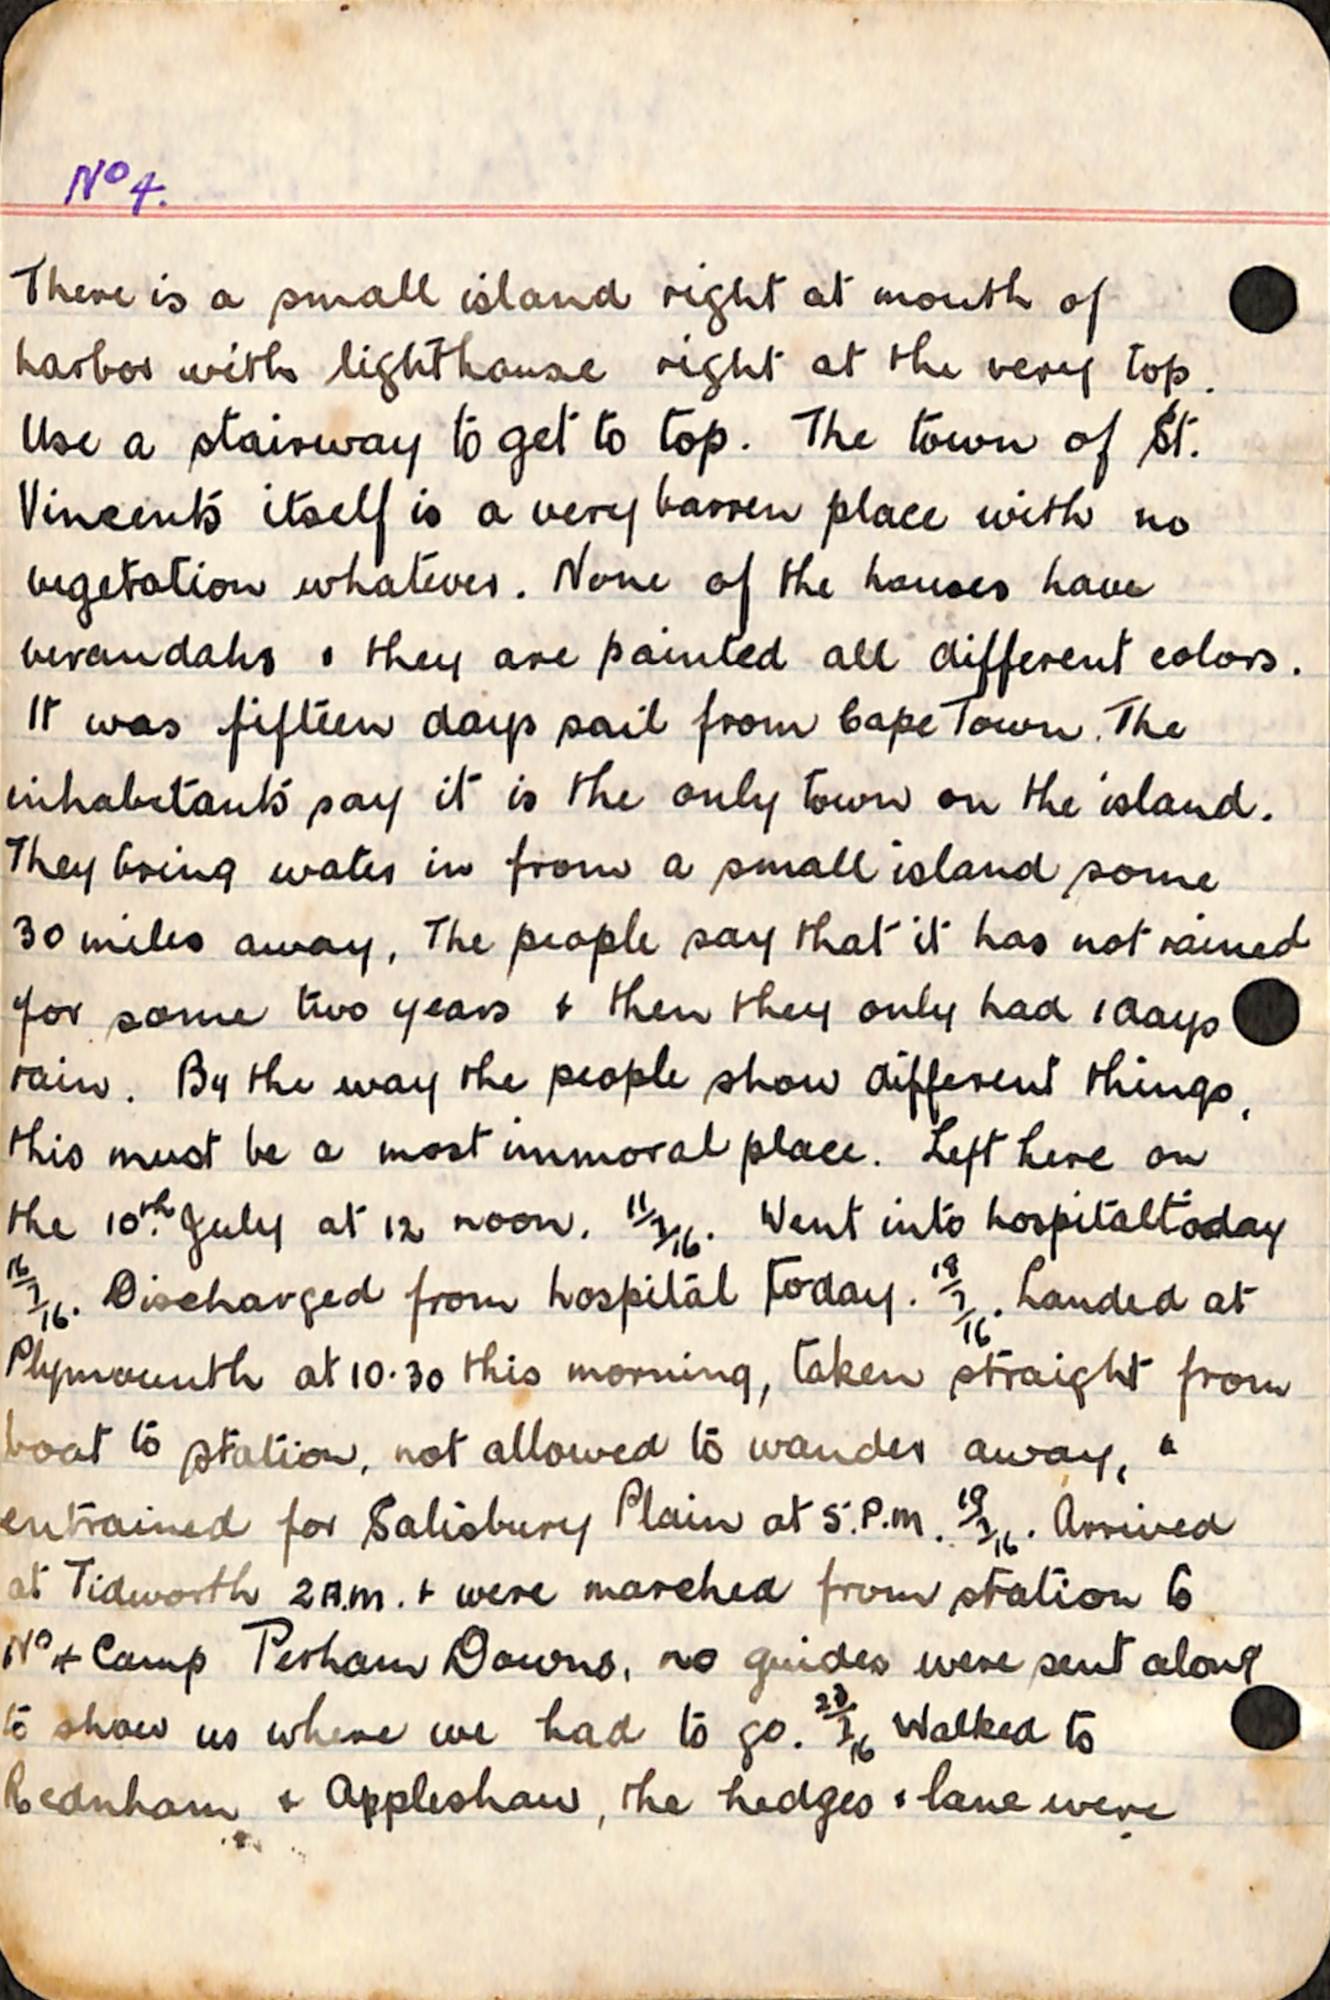 No 4.
There is a small island right at mouth of
harbor with lighthouse right at the very top.
Use a stairway to get to top. The town of St.
Vincents itself is a very barren place with no
vegetation whatever. None of the houses have
verandahs & they are painted all different colors.
It was fifteen days sail from Cape Town. The
inhabitants say it is the only town on the island.
They bring water in from a small island some
30 miles away, The people say that it has not rained
for some two years & then they only had 1 days
rain. By the way the people show different things,
this must be a most immoral place. Left here on
the 10th July at 12 noon. 11/7/16. Went into hospital today
16/7/16. Discharged from hospital today. 18/7/16. Landed at
Plymouth at 10.30 this morning, taken straight from
boat to station, not allowed to wander away, &
entrained for Salisbury Plain at 5.P.M. 19/7/16. Arrived
at Tidworth 2A.M. & were marched from station to
No 4 Camp Perham Downs, no guides were sent along
to show us where we had to go. 23/7/16 Walked to
Rednham & Appleshaw, the hedges & lane were